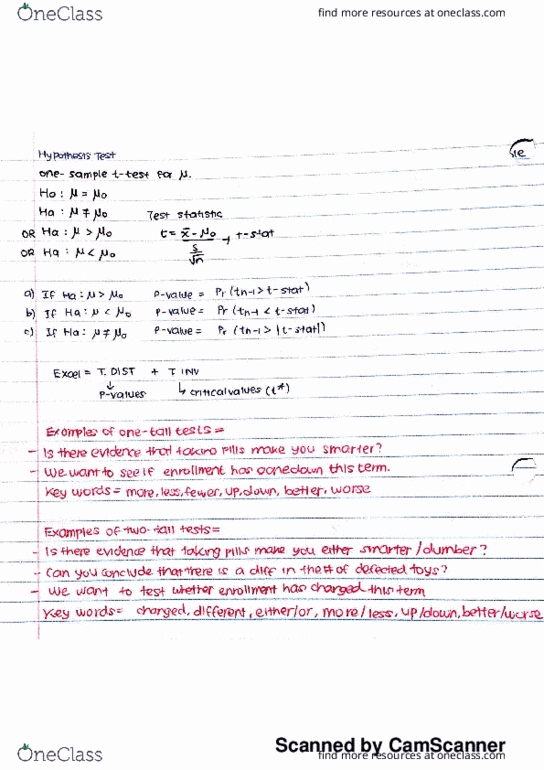 OneClass
find more resources at oneclass.com
Hypothesis Test
one-sample t-test for μ.
Ho : μ = μo
Ha : μ ≠ μo Test statistic
OR Ha : μ > μo t = x̄ - μo / s/√n → t-stat
OR Ha : μ < μo
a) If Ha : μ > μo P-value = Pr (tn-1 > t-stat)
b) If Ha : μ < μo P-value = Pr (tn-1 < t-stat)
c) If Ha : μ ≠ μo P-value = Pr (tn-1 > |t-stat|)
Excel = T.DIST + T INV
↓ P-values ↳ critical values (t*)
Examples of one-tail tests =
- Is there evidence that taking pills make you smarter?
- We want to see if enrollment has gone down this term.
Key words = more, less, fewer, up, down, better, worse
Examples of two-tail tests =
- Is there evidence that taking pills make you either smarter/dumber?
- Can you conclude that there is a diff in the # of defected toys?
- We want to test whether enrollment has changed this term
Key words = changed, different, either/or, more/less, up/down, better/worse
Scanned by CamScanner
OneClass
find more resources at oneclass.com